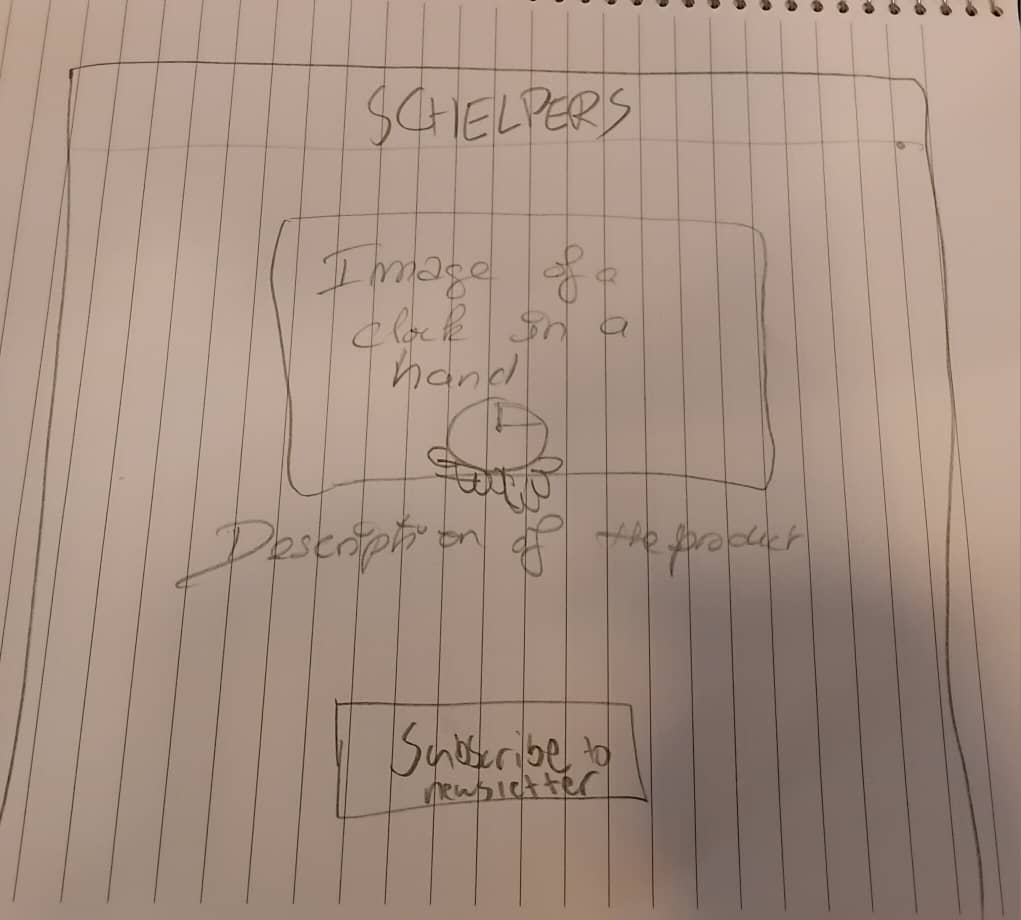 SCHELPERS
Image of a
clock in a
hand
Description of the product
Subscribe to
newsletter